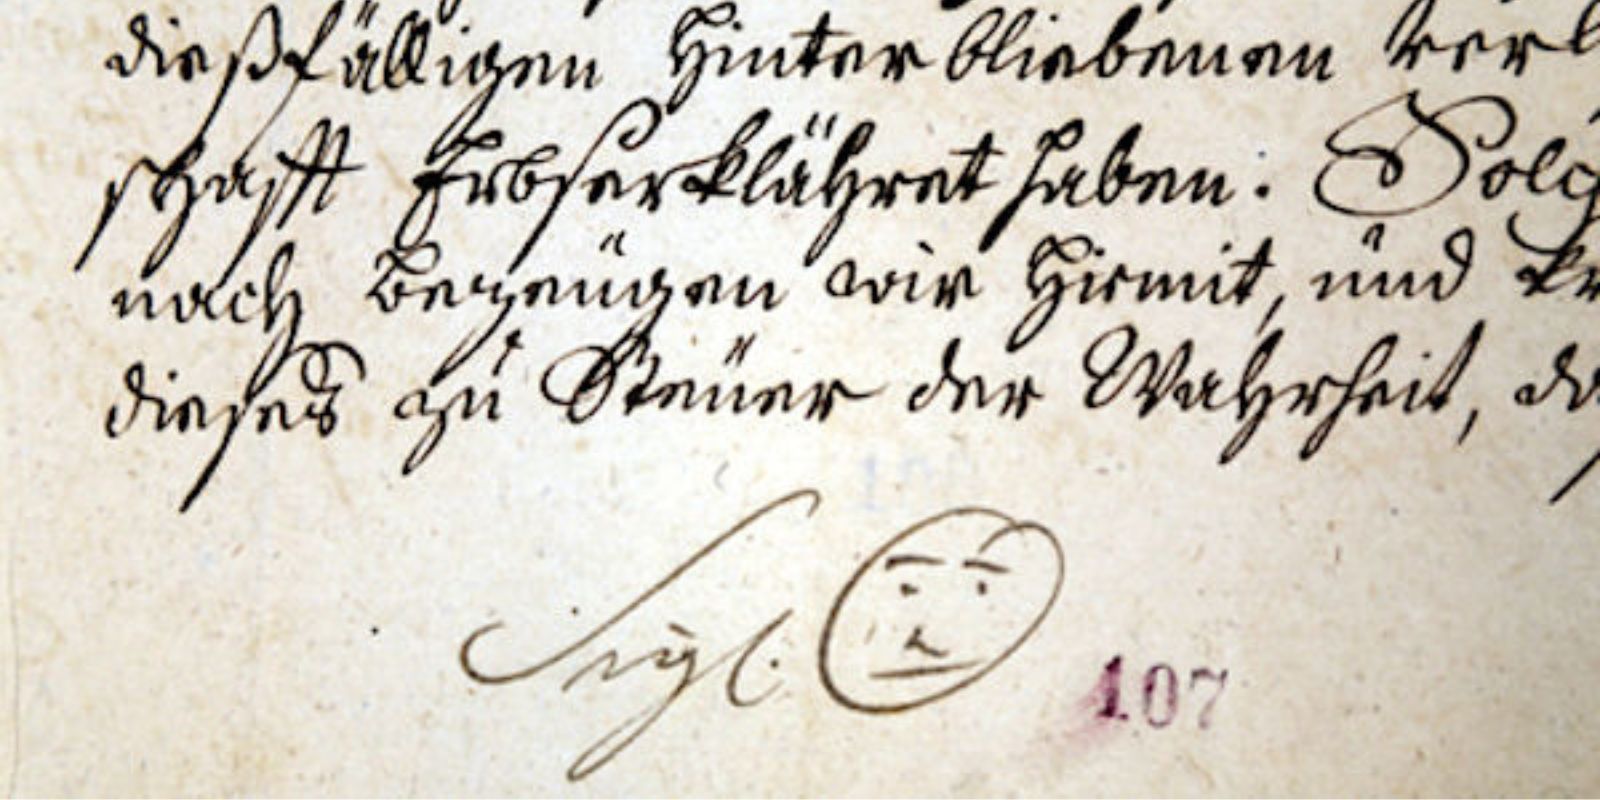 dießfälligen Hinterbliebenen Verl
schafft Erbserklähret haben. Solch
nach bezeügen wir Hiemit, und kr
dieses zu Steüer der Wahrheit, da
Sigl.
107